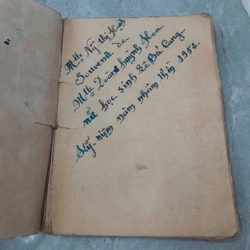 Mlle Ng Thị Hạnh
Souvenir de
Mlle Đoàn Huỳnh Hoa
nữ học sinh Lê Bá Cang
Kỷ-niệm năm nhâm thìn 1952.